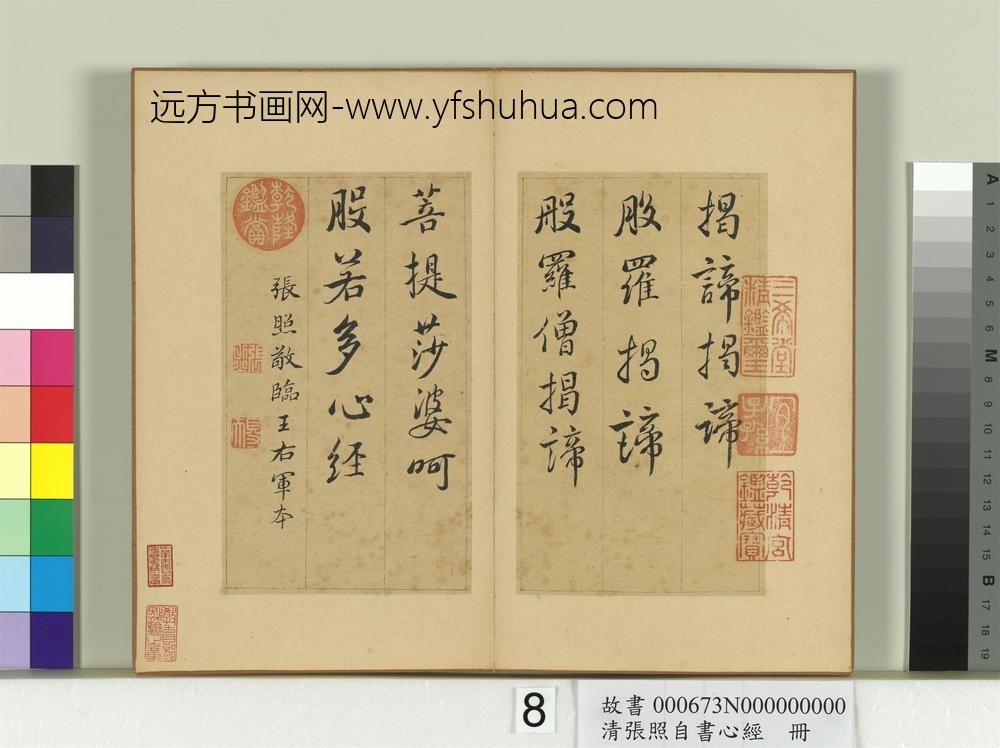 远方书画网-www.yfshuhua.com
揭諦揭諦
般羅揭諦
般羅僧揭諦
三希堂精鑑璽
宜子孫
乾清宮鑑藏寶
菩提莎婆呵
般若多心経
乾隆鑑賞
張照敬臨王右軍本
張照
教育部點驗之章
A 1 2 3 4 5 M 8 9 10 11 12 13 14 15 B 17 18 19
8
故書 000673N000000000
清張照自書心經 冊